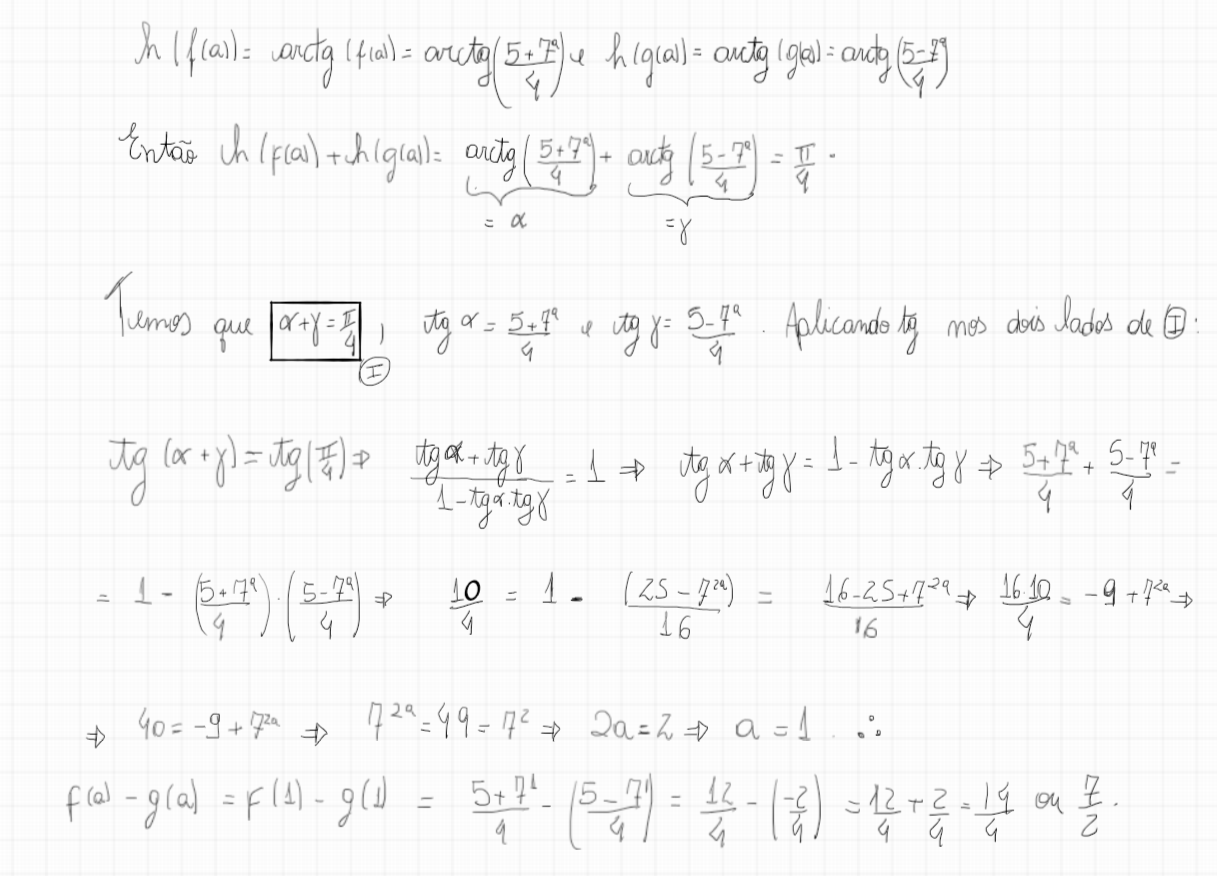 h(f(a)) = arctg (f(a)) = arctg((5+7^a)/4) e h(g(a)) = arctg (g(a)) = arctg((5-7^a)/4)
Então h(f(a)) + h(g(a)) = arctg((5+7^a)/4) + arctg((5-7^a)/4) = π/4 .
= α = γ
Temos que α+γ = π/4 , tg α = (5+7^a)/4 e tg γ = (5-7^a)/4 . Aplicando tg nos dois lados de I :
I
tg (α+γ) = tg(π/4) ⇒ (tg α + tg γ)/(1 - tg α . tg γ) = 1 ⇒ tg α + tg γ = 1 - tg α . tg γ ⇒ (5+7^a)/4 + (5-7^a)/4 =
= 1 - ((5+7^a)/4) . ((5-7^a)/4) ⇒ 10/4 = 1 - (25 - 7^2a)/16 = (16-25+7^2a)/16 ⇒ 16.10/4 = -9 + 7^2a ⇒
⇒ 40 = -9 + 7^2a ⇒ 7^2a = 49 = 7^2 ⇒ 2a = 2 ⇒ a = 1 . ∴
f(a) - g(a) = f(1) - g(1) = (5+7^1)/4 - ((5-7^1)/4) = 12/4 - (-2/4) = 12/4 + 2/4 = 14/4 ou 7/2 .